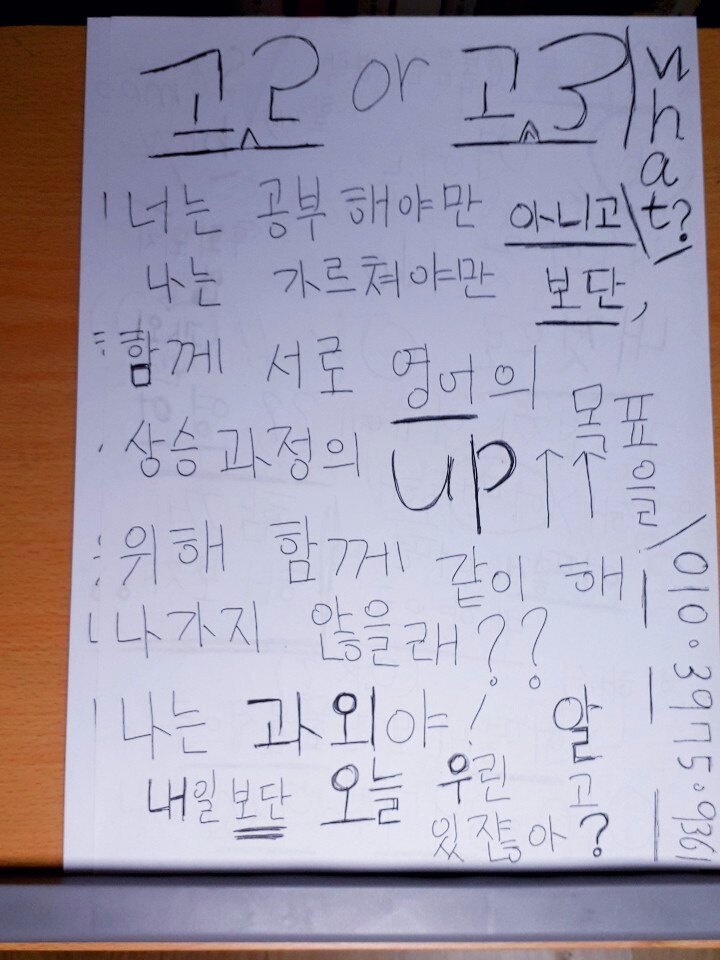 고2 or 고3
what?
너는 공부해야만 아니고
나는 가르쳐야만 보단,
함께 서로 영어의
상승과정의 UP ↑↑ 목표을
위해 함께 같이 해
나가지 않을래??
나는 과외야!
내일보단 오늘 우린 알고
있잖아?
010.3975.9361